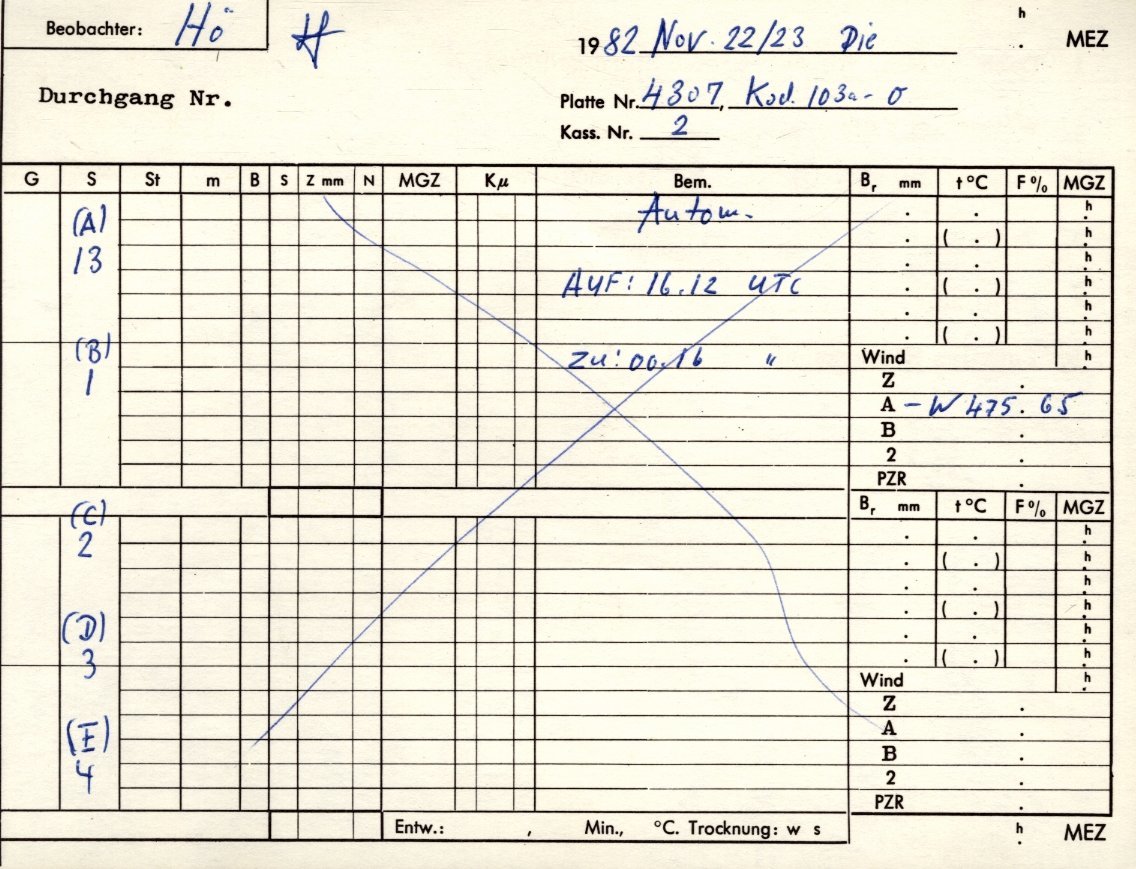 Beobachter: Hö
1982 Nov. 22/23 Die
h . MEZ
Durchgang Nr.
Platte Nr. 4307, Kod. 103a-O
Kass. Nr. 2
G S St m B S Z mm N MGZ Kμ Bem. Br mm t °C F % MGZ
(A) Autom. . . h
13 . ( . ) h
. . h
AUF: 16.12 UTC . ( . ) h
. . h
. ( . ) h
(B) zu: 00.16 " Wind h
1 Z .
A - W 475.65
B .
2 .
PZR .
Br mm t °C F % MGZ
(C) . . h
2 . ( . ) h
. . h
. ( . ) h
(D) . . h
3 . ( . ) h
Wind h
Z .
(E) A .
B .
4 2 .
PZR .
Entw.: , Min., °C. Trocknung: w s
h . MEZ